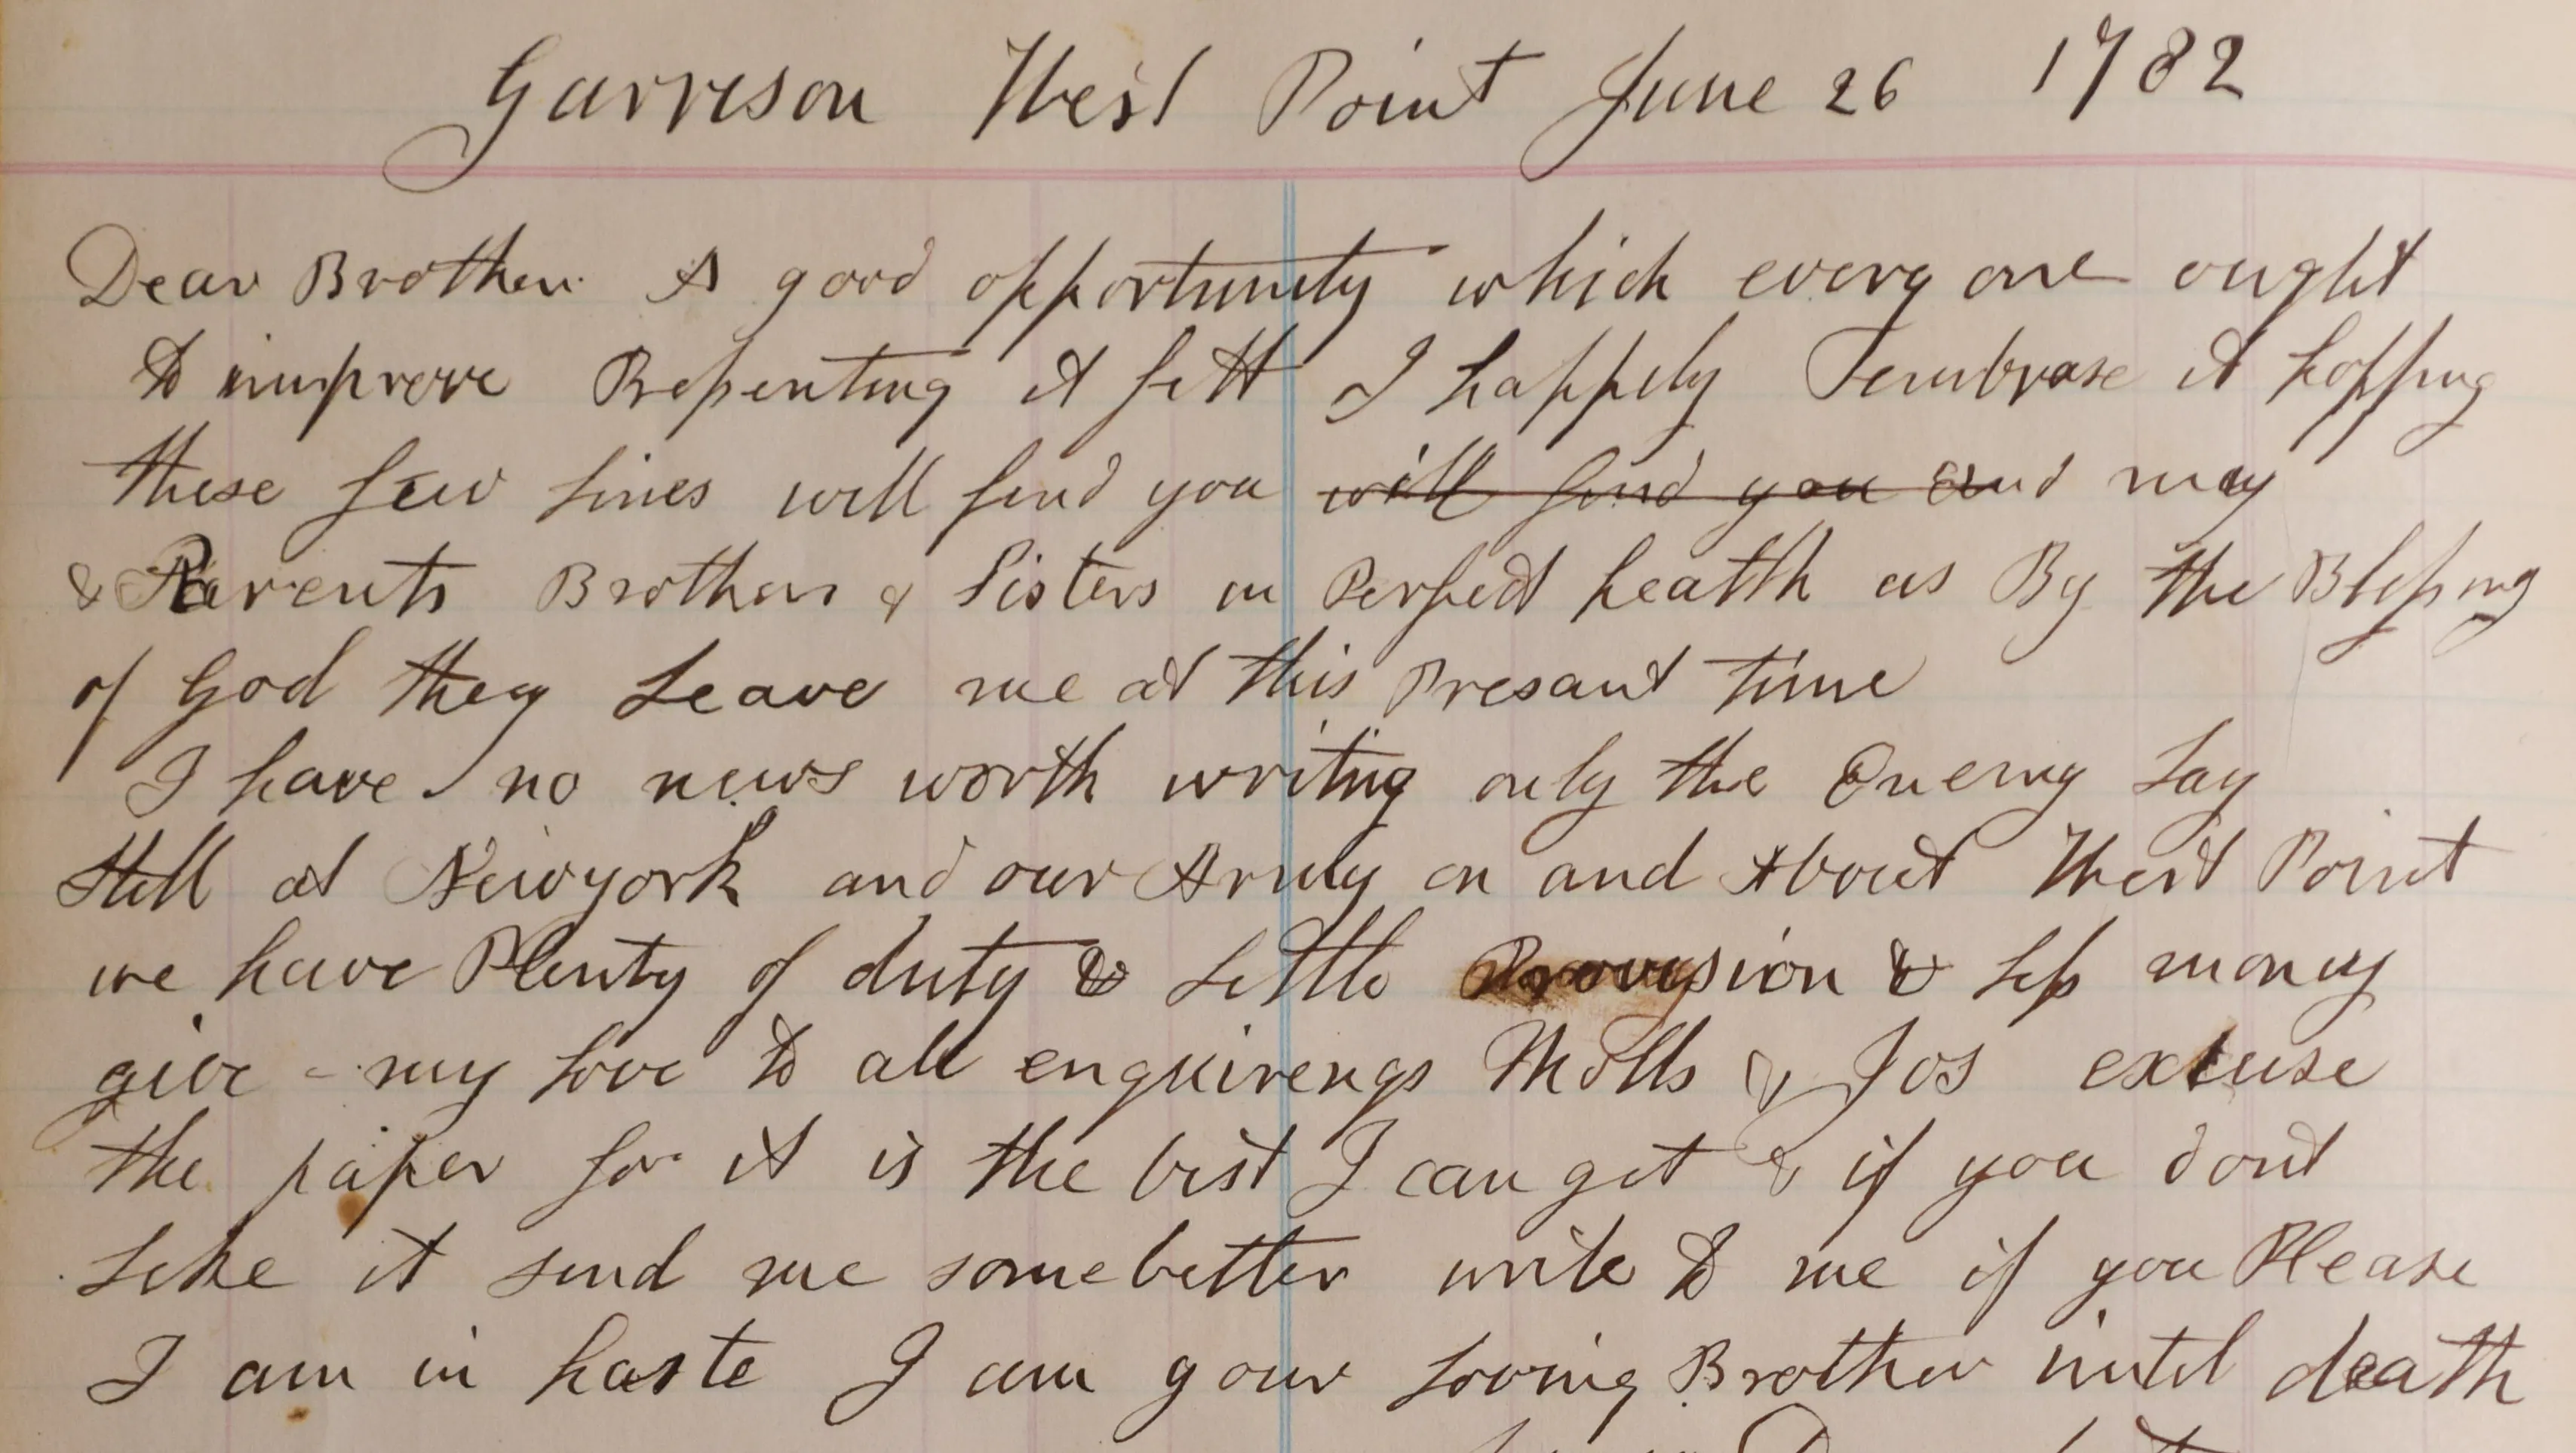 Garrison West Point June 26 1782
Dear Brother A good opportunity which every one ought
to improve Repenting it fitt I happely Tembrase it hopping
these few Lines will find you will find you and may
& Parents Brothers & Sisters in Perfect heatth as By the Blessing
of God they Leave me at this Presant time
I have no news worth writing only the Enemy Lay
Still at Newyork and our Army on and About West Point
we have Plenty of duty & Little Provision & Less money
give my Love to all enquirengs Molls & Jos excuse
the paper for it is the best I can get & if you dont
Like it send me some better write to me if you Please
I am in haste I am your Loving Brother until death